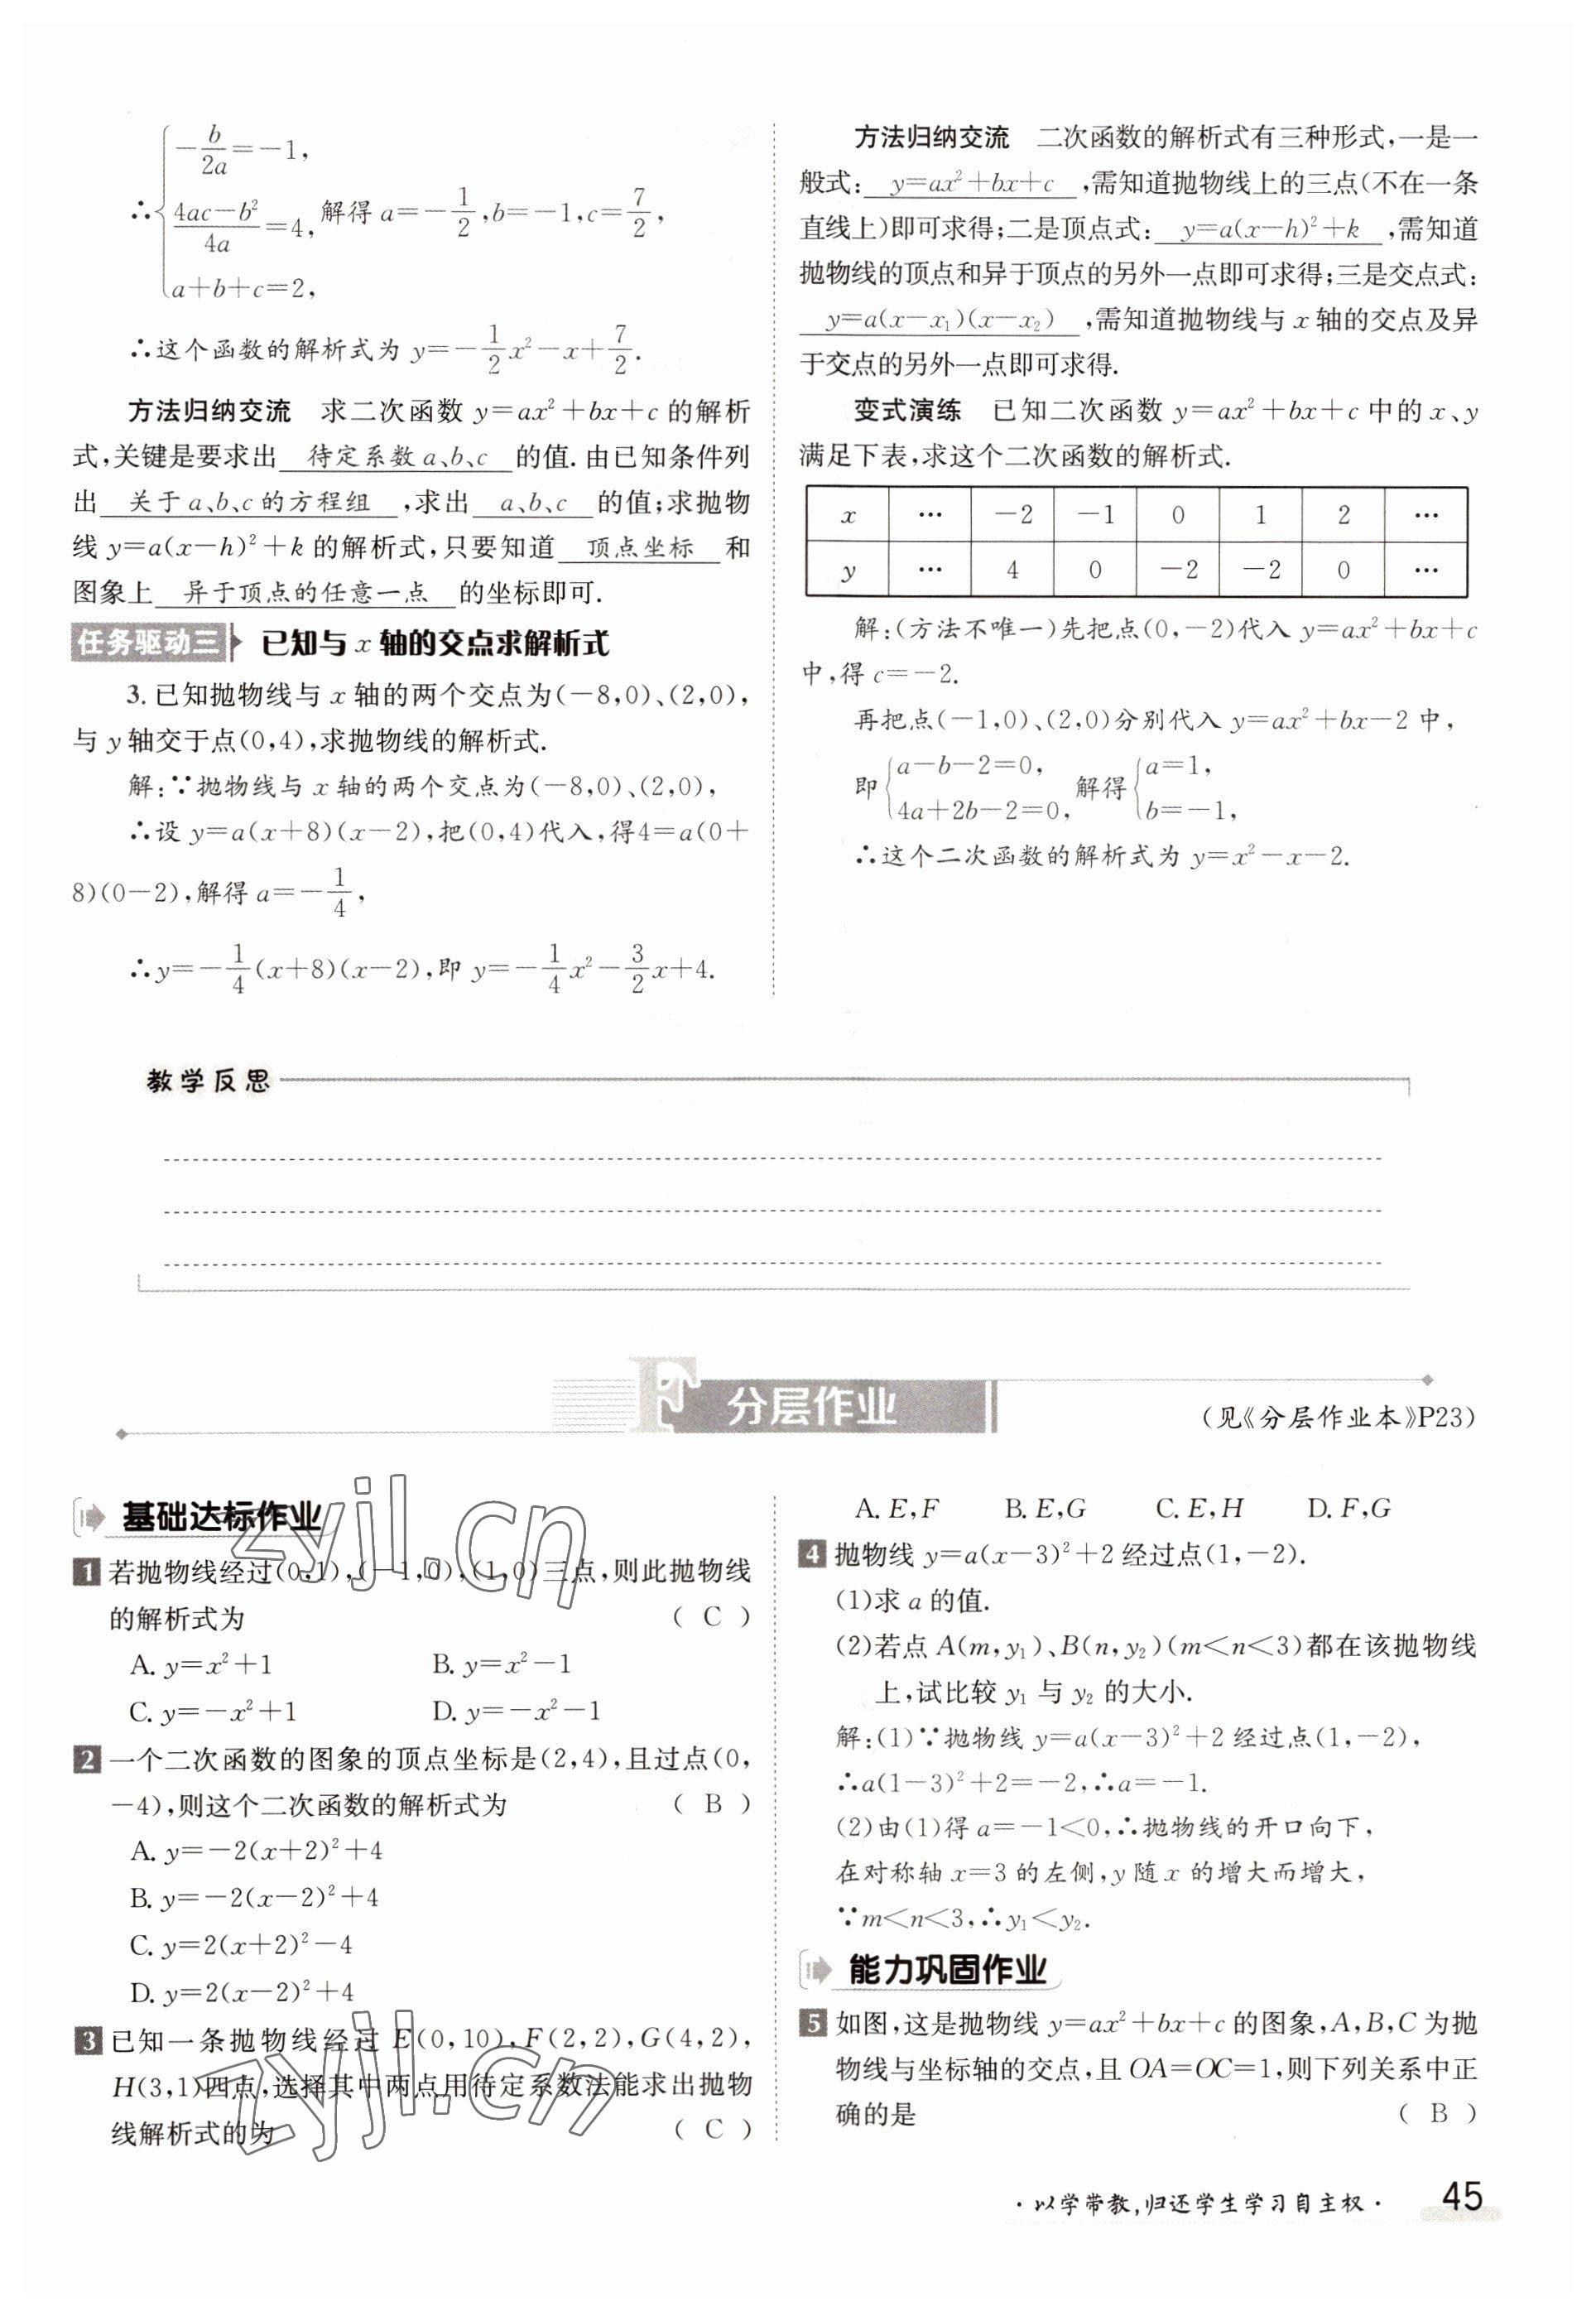 ∴{−b/2a=−1,
(4ac−b²)/4a=4, 解得 a=−1/2,b=−1,c=7/2,
a+b+c=2,
∴这个函数的解析式为 y=−1/2x²−x+7/2.
方法归纳交流 求二次函数 y=ax²+bx+c 的解析
式,关键是要求出 待定系数 a、b、c 的值. 由已知条件列
出 关于 a、b、c 的方程组 ,求出 a、b、c 的值;求抛物
线 y=a(x−h)²+k 的解析式,只要知道 顶点坐标 和
图象上 异于顶点的任意一点 的坐标即可.
任务驱动三 已知与 x 轴的交点求解析式
3. 已知抛物线与 x 轴的两个交点为(−8,0)、(2,0),
与 y 轴交于点(0,4),求抛物线的解析式.
解:∵抛物线与 x 轴的两个交点为(−8,0)、(2,0),
∴设 y=a(x+8)(x−2),把(0,4)代入,得4=a(0+
8)(0−2),解得 a=−1/4,
∴y=−1/4(x+8)(x−2),即 y=−1/4x²−3/2x+4.
方法归纳交流 二次函数的解析式有三种形式,一是一
般式: y=ax²+bx+c ,需知道抛物线上的三点(不在一条
直线上)即可求得;二是顶点式: y=a(x−h)²+k ,需知道
抛物线的顶点和异于顶点的另外一点即可求得;三是交点式:
y=a(x−x₁)(x−x₂) ,需知道抛物线与 x 轴的交点及异
于交点的另外一点即可求得.
变式演练 已知二次函数 y=ax²+bx+c 中的 x、y
满足下表,求这个二次函数的解析式.
x … −2 −1 0 1 2 …
y … 4 0 −2 −2 0 …
解:(方法不唯一)先把点(0,−2)代入 y=ax²+bx+c
中,得 c=−2.
再把点(−1,0)、(2,0)分别代入 y=ax²+bx−2 中,
即{a−b−2=0, 解得{a=1,
4a+2b−2=0, b=−1,
∴这个二次函数的解析式为 y=x²−x−2.
教学反思
F 分层作业
(见《分层作业本》P23)
基础达标作业
1 若抛物线经过(0,1),(−1,0),(1,0)三点,则此抛物线
的解析式为 ( C )
A. y=x²+1 B. y=x²−1
C. y=−x²+1 D. y=−x²−1
2 一个二次函数的图象的顶点坐标是(2,4),且过点(0,
−4),则这个二次函数的解析式为 ( B )
A. y=−2(x+2)²+4
B. y=−2(x−2)²+4
C. y=2(x+2)²−4
D. y=2(x−2)²+4
3 已知一条抛物线经过 E(0,10),F(2,2),G(4,2),
H(3,1)四点,选择其中两点用待定系数法能求出抛物
线解析式的为 ( C )
A. E,F B. E,G C. E,H D. F,G
4 抛物线 y=a(x−3)²+2 经过点(1,−2).
(1)求 a 的值.
(2)若点 A(m,y₁)、B(n,y₂)(m<n<3)都在该抛物线
上,试比较 y₁ 与 y₂ 的大小.
解:(1)∵抛物线 y=a(x−3)²+2 经过点(1,−2),
∴a(1−3)²+2=−2,∴a=−1.
(2)由(1)得 a=−1<0,∴抛物线的开口向下,
在对称轴 x=3 的左侧,y 随 x 的增大而增大,
∵m<n<3,∴y₁<y₂.
能力巩固作业
5 如图,这是抛物线 y=ax²+bx+c 的图象,A,B,C 为抛
物线与坐标轴的交点,且 OA=OC=1,则下列关系中正
确的是 ( B )
zyjl.cn
zyjl.cn
·以学带教,归还学生学习自主权· 45